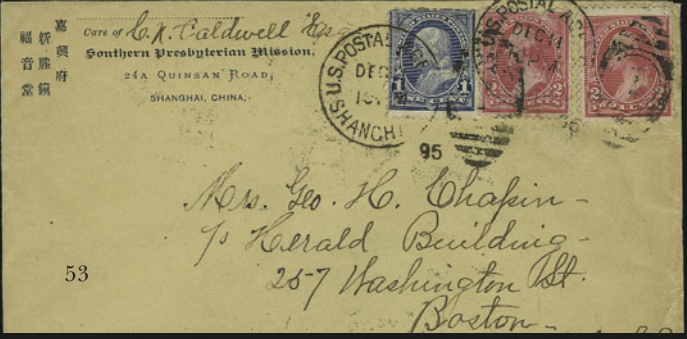 嘉興府
新塍鎮
福音堂
Care of C. N. Caldwell Esq
Southern Presbyterian Mission,
24A QUINSAN ROAD,
SHANGHAI, CHINA.
U.S. POSTAL
DEC
SHANGHI
95
1 1
U.S. POSTAL
DEC 11
2 CENTS
2
Mrs. Geo. H. Chapin -
Herald Building -
257 Washington St.
Boston -
53